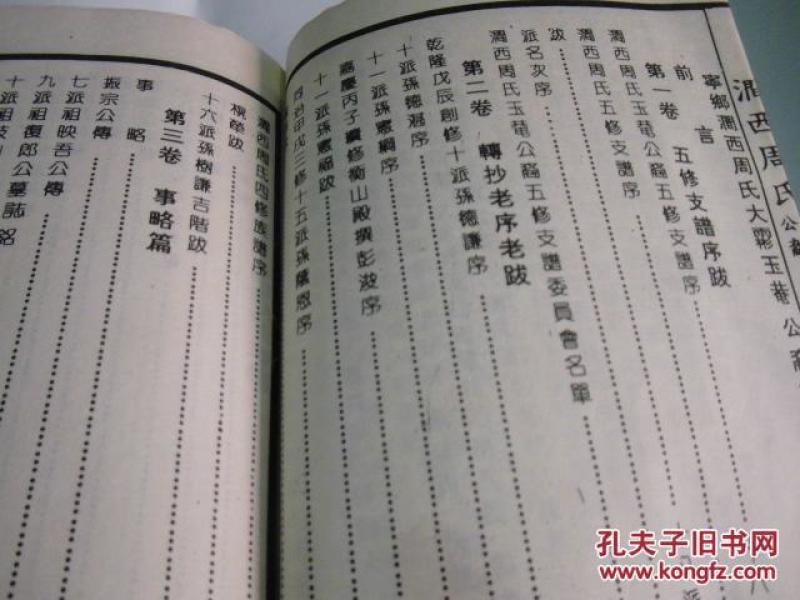 溈西周氏
寧鄉溈西周氏大彭玉菴公裔
前言
第一卷 五修支譜序跋
溈西周氏玉菴公裔五修支譜序
溈西周氏五修支譜序
溈西周氏玉菴公裔五修支譜委員會名單
跋
派名次序
第二卷 轉抄老序老跋
乾隆戊辰創修十派孫德謙序
十派孫德溷序
十一派孫憲綱序
嘉慶丙子續修衡山殿撰彭浚序
十一派孫憲福跋
同治甲戌三修十五派孫蔭恩序
溈西周氏四修族譜序
模榮跋
十六派孫樹謙吉階跋
第三卷 事略篇
事略
振宗公傳
七派祖映吾公傳
九派祖復郎公墓誌銘
孔夫子旧书网
www.kongfz.com